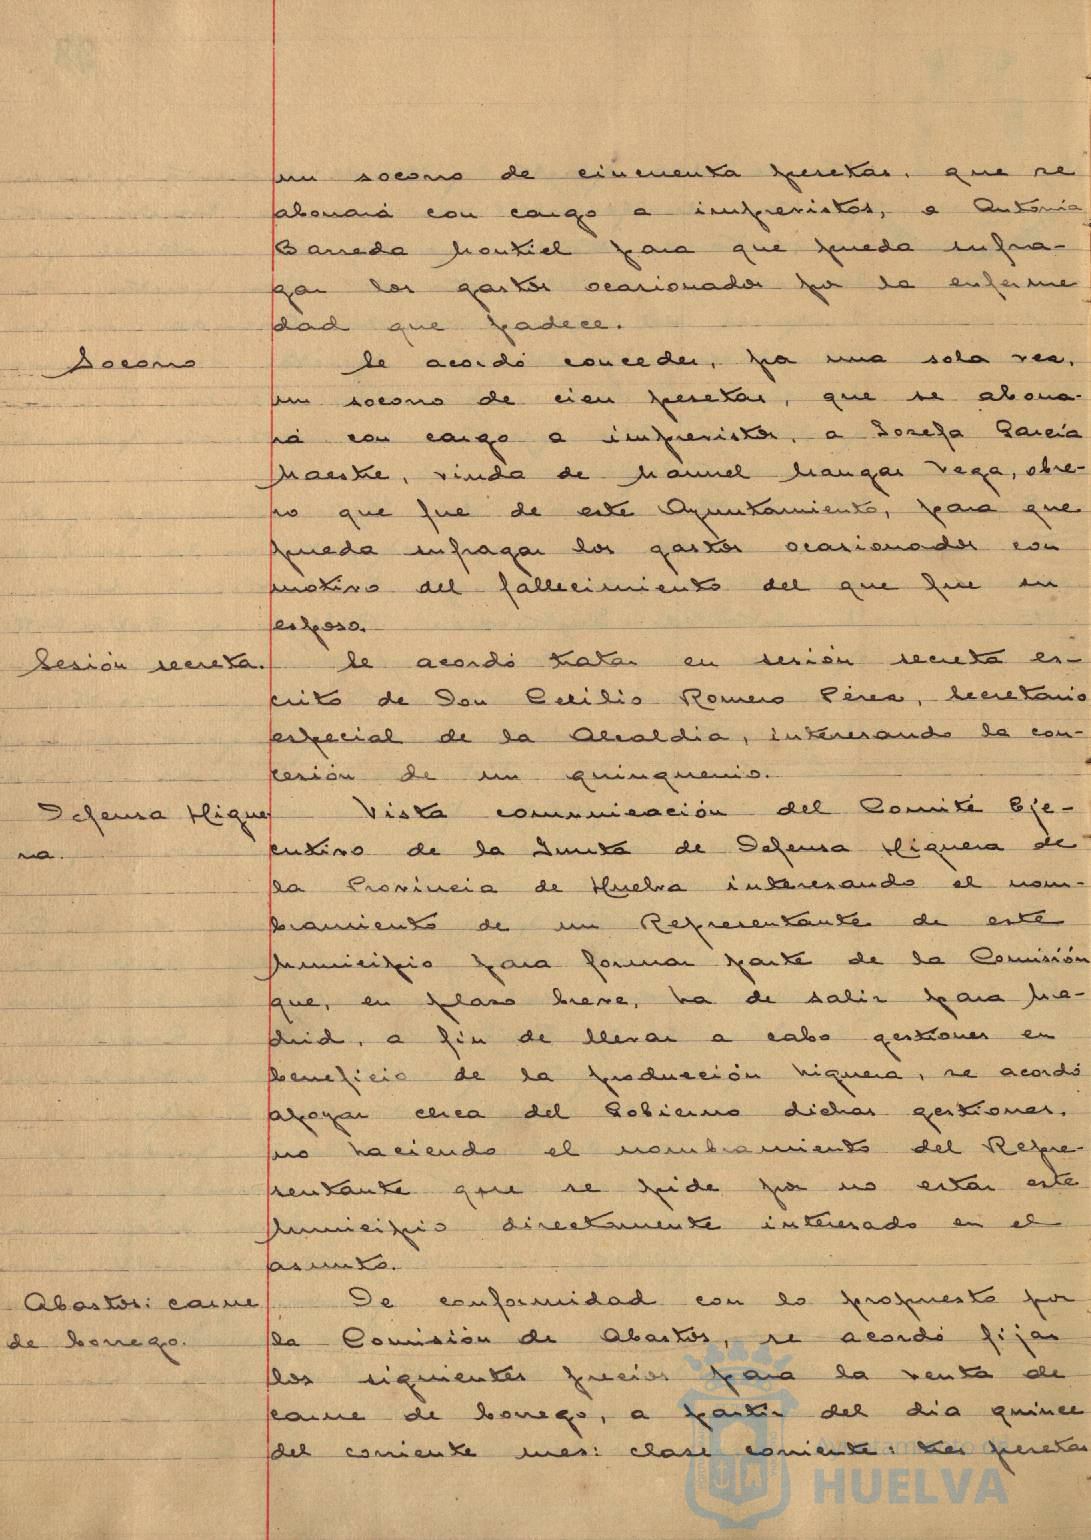 un socorro de cincuenta pesetas, que se
abonará con cargo a imprevistos, a Antonia
Barreda Montiel para que pueda sufra-
gar los gastos ocasionados por la enferme
dad que padece.
Socorro
Se acordó conceder, por una sola vez,
un socorro de cien pesetas, que se abona-
rá con cargo a imprevistos, a Josefa García
Maestre, viuda de Manuel Mangas Vega, obre-
ro que fue de este Ayuntamiento, para que
pueda sufragar los gastos ocasionados con
motivo del fallecimiento del que fue su
esposo.
Sesión secreta.
Se acordó tratar en sesión secreta es-
crito de Don Cecilio Romero Pérez, Secretario
especial de la Alcaldía, interesando la con-
cesión de un quinquenio.
Defensa Higue
ra.
Vista comunicación del Comité Eje-
cutivo de la Junta de Defensa Higuera de
la Provincia de Huelva interesando el nom-
bramiento de un Representante de este
Municipio para formar parte de la Comisión
que, en plazo breve, ha de salir para Ma-
drid, a fin de llevar a cabo gestiones en
beneficio de la producción higuera, se acordó
apoyar cerca del Gobierno dichas gestiones,
no haciendo el nombramiento del Repre-
sentante que se pide por no estar este
Municipio directamente interesado en el
asunto.
Abastos: carne
de borrego.
De conformidad con lo propuesto por
la Comisión de Abastos, se acordó fijar
los siguientes precios para la venta de
carne de borrego, a partir del día quince
del corriente mes: clase corriente: tres pesetas
Ayuntamiento de
HUELVA